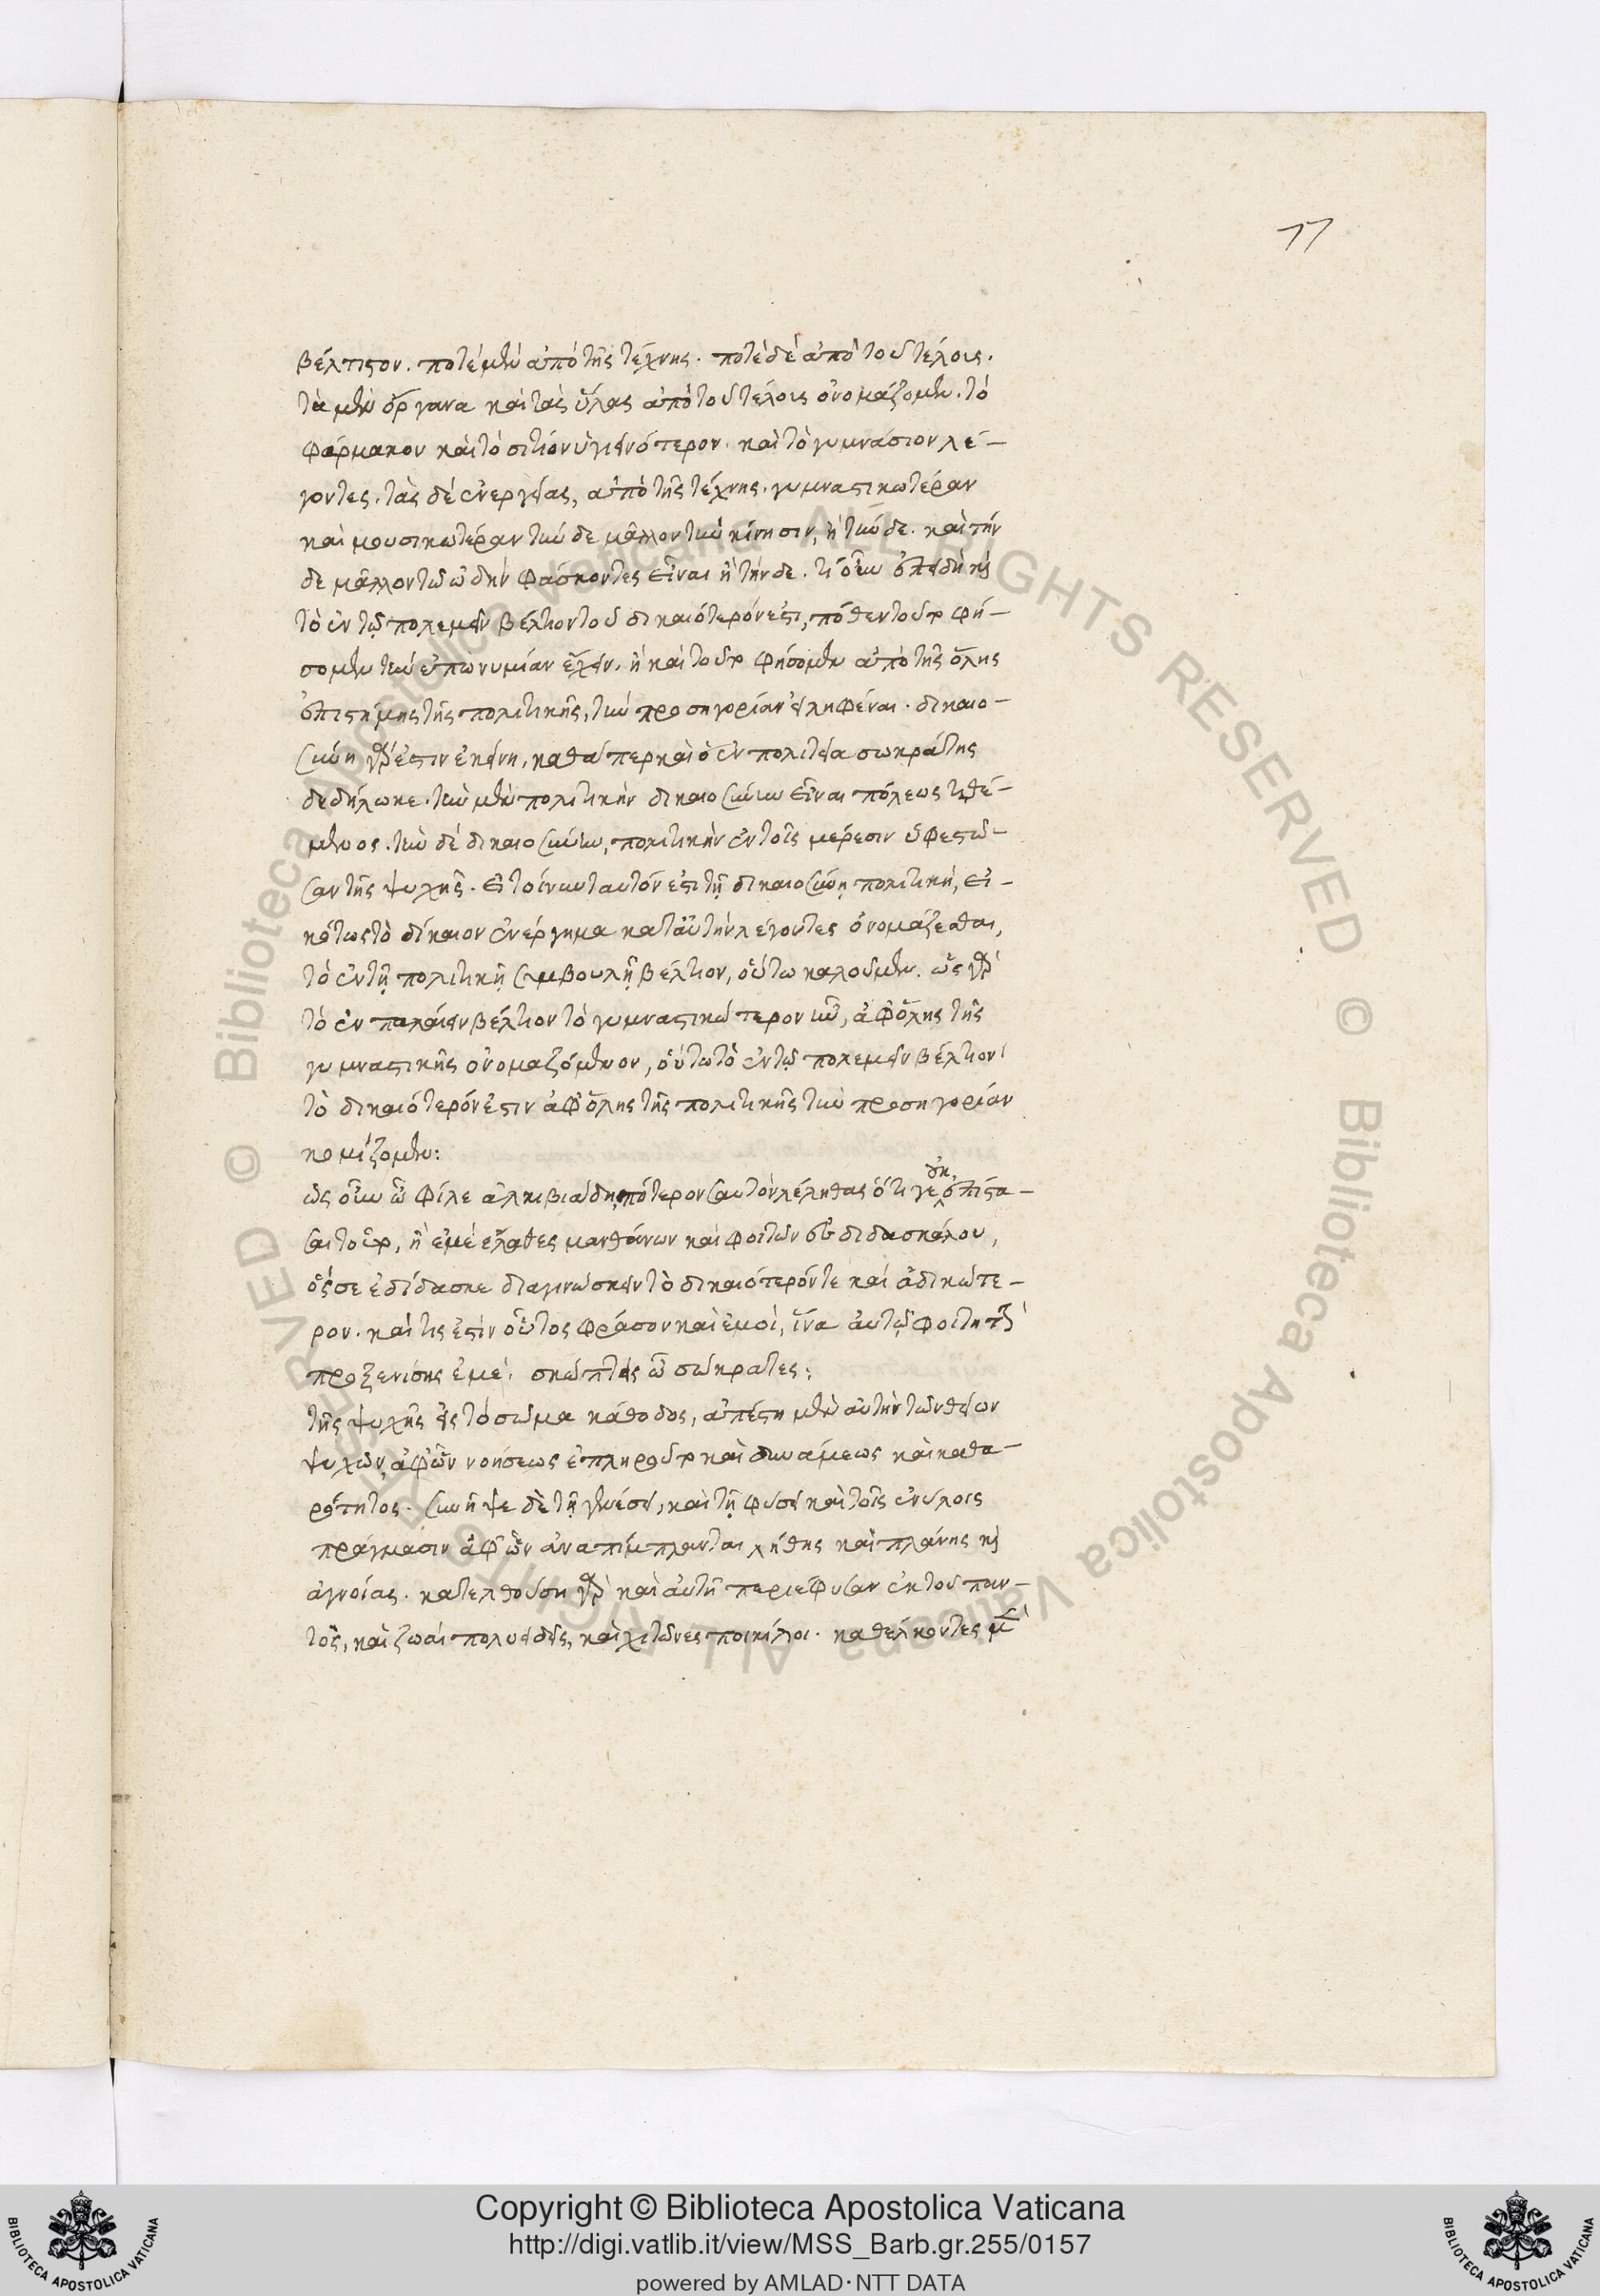 77
βέλτιστον. ποτὲ μὲν ἀπὸ τῆς τέχνης. ποτὲ δὲ ἀπὸ τοῦ τέλους.
τὰ μὲν ὄργανα καὶ τὰς ὕλας ἀπὸ τοῦ τέλους ὀνομάζομεν. τὸ
φάρμακον καὶ τὸ σιτίον ὑγιεινότερον. καὶ τὸ γυμνάσιον λέ-
γοντες. τὰς δὲ ἐνεργείας, ἀπὸ τῆς τέχνης. γυμναστικωτέραν
καὶ μουσικωτέραν τήνδε μᾶλλον τὴν κίνησιν, ἢ τήνδε. καὶ τήν
δε μᾶλλον τὴν ὠδὴν φάσκοντες εἶναι ἢ τήνδε. τί οὖν ἐπειδὴ καὶ
τὸ ἐν τῷ πολεμεῖν βέλτιον τοῦ δικαιότερόν ἐστι, πόθεν τοῦτο φή-
σομεν τὴν ἐπωνυμίαν ἔχειν. ἢ καὶ τοῦτο φήσομεν ἀπὸ τῆς ὅλης
ἐπιστήμης τῆς πολιτικῆς, τὴν προσηγορίαν εἰληφέναι. δικαιο-
σύνη γάρ ἐστιν ἐκείνη, καθάπερ καὶ ὁ ἐν πολιτεία σωκράτης
δεδήλωκε. τὴν μὲν πολιτικὴν δικαιοσύνην εἶναι πόλεως τιθέ-
μενος. τὴν δὲ δικαιοσύνην, πολιτικὴν ἐν τοῖς μέρεσιν ὑφεστῶ-
σαν τῆς ψυχῆς. εἰ τοίνυν ταυτόν ἐστι τῇ δικαιοσύνῃ πολιτική, εἰ-
κότως τὸ δίκαιον ἐνέργημα κατ' αὐτὴν λέγοντες ὀνομάζεσθαι,
τὸ ἐν τῇ πολιτικῇ συμβουλῇ βέλτιον, οὕτω καλοῦμεν. ὡς γὰρ
τὸ ἐν παλαίειν βέλτιον τὸ γυμναστικώτερον ἦν, ἀφ' ὅλης τῆς
γυμναστικῆς ὀνομαζόμενον, οὕτω τὸ ἐν τῷ πολεμεῖν βέλτιον
τὸ δικαιότερόν ἐστιν ἀφ' ὅλης τῆς πολιτικῆς τὴν προσηγορίαν
κομίζομεν:
ὡς οὖν ὦ φίλε ἀλκιβιάδη, πότερον σαυτὸν λέληθας ὅτι γε οὐκ ἐπίστα-
σαι τοῦτο, ἢ ἐμὲ ἔλαθες μανθάνων καὶ φοιτῶν εἰς διδασκάλου,
ὅς σε ἐδίδασκε διαγινώσκειν τὸ δικαιότερόν τε καὶ ἀδικώτε-
ρον. καὶ τίς ἐστὶν οὗτος φράσον καὶ ἐμοί, ἵνα αὐτῷ φοιτητὴν
προξενίσης ἐμέ. σκώπτεις ὦ σώκρατες:
τῆς ψυχῆς εἰς τὸ σῶμα κάθοδος, ἀπέστη μὲν αὐτὴν τῶν θείων
ψυχῶν, ἀφ' ὧν νοήσεως ἐπληροῦτο καὶ δυνάμεως καὶ καθα-
ρότητος. συνῆψε δὲ τῇ γενέσει, καὶ τῇ φύσει καὶ τοῖς ἐνύλοις
πράγμασιν ἀφ' ὧν ἀναπίμπλανται λήθης καὶ πλάνης καὶ
ἀγνοίας. κατελθούσῃ γὰρ καὶ αὐτῇ περιέφυσαν ἐκ τοῦ παν-
τὸς, καὶ ζωαὶ πολυειδεῖς, καὶ χιτῶνες ποικίλοι. καθέλκοντες μὲν
Copyright © Biblioteca Apostolica Vaticana
http://digi.vatlib.it/view/MSS_Barb.gr.255/0157
powered by AMLAD·NTT DATA
BIBLIOTECA APOSTOLICA VATICANA
BIBLIOTECA APOSTOLICA VATICANA
© Biblioteca Apostolica Vaticana ALL RIGHTS RESERVED
© Biblioteca Apostolica Vaticana ALL RIGHTS RESERVED